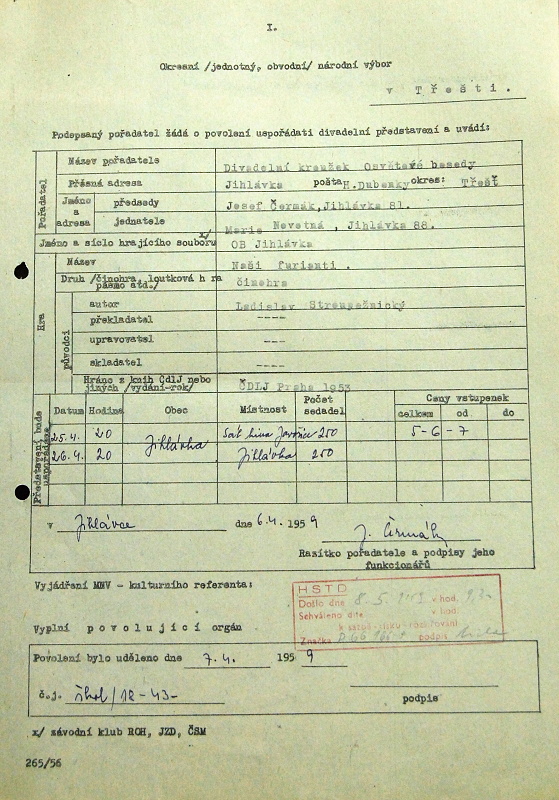 I.
Okresní /jednotný, obvodní/ národní výbor
v Třešti.
Podepsaný pořadatel žádá o povolení uspořádati divadelní představení a uvádí:
Pořadatel
Název pořadatele Divadelní kroužek Osvětové besedy
Přesná adresa Jihlávka pošta H.Dubenky okres: Třešť
Jméno a adresa
předsedy Josef Čermák, Jihlávka 81.
jednatele Marie Novotná , Jihlávka 88.
Jméno a sídlo hrajícího souboru x/ OB Jihlávka
Hra
Název Naši furianti .
Druh /činohra, loutková hra
pásmo atd./ činohra
původci
autor Ladislav Stroupežnický
překladatel ----
upravovatel ----
skladatel ----
Hráno z knih ČDLJ nebo
jiných /vydání-rok/ ČDLJ Praha 1953
Představení bude uspořádáno
Datum Hodina Obec Místnost Počet sedadel Ceny vstupenek
celkem od do
25.4. 20 Jihlávka 250 5-6-7
26.4. 20 Jihlávka 250
v Jihlávce dne 6.4. 1959 J. Čermák
Razítko pořadatele a podpisy jeho
funkcionářů
Vyjádření MNV - kulturního referenta:
HSTD
Došlo dne 8.5.1959 v hod.
Schváleno dne v hod.
Značka podpis
Vyplní povolující orgán
Povolení bylo uděleno dne 7.4. 1959
č.j. škol/12-43-
podpis
x/ závodní klub ROH, JZD, ČSM
265/56